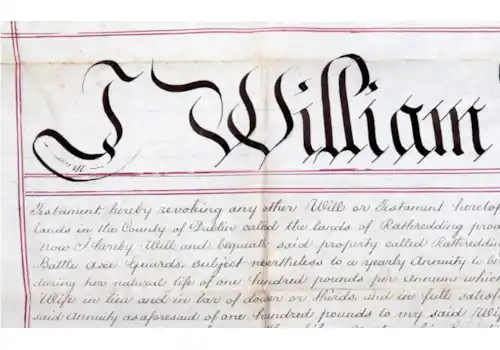 I William
Testament hereby revoking any other Will or Testament hereto
lands in the County of Dublin called the lands of Rathredding
now I hereby Will and bequeath said property called Rathredding
Battle Axe Guards. Subject nevertheless to a yearly Annuity to
during her natural life of one hundred pounds per Annum which
Wife in lieu and in bar of dower or thirds, and in full
said Annuity as aforesaid of one hundred pounds to my said Wife